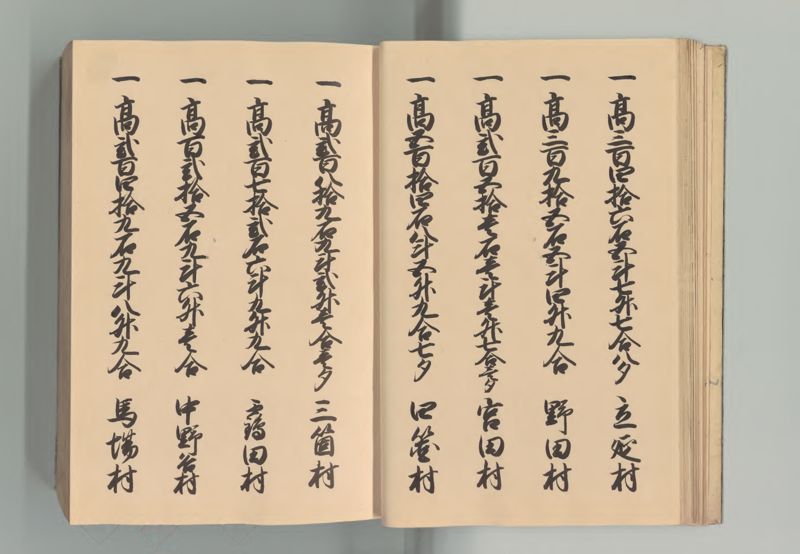 一 高三百四拾六石五斗七升七合八夕 立延村
一 高三百九拾五石五斗四升九合 野田村
一 高弐百五拾壱石壱斗壱升七合壱夕 宮田村
一 高五百拾四石八斗五升九合七夕 四箇村
一 高弐百八拾九石九斗弐升壱合壱夕 三箇村
一 高弐百七拾弐石六斗九升九合 田村
一 高百弐拾五石九斗六升壱合 中野谷村
一 高弐百四拾九石九斗八升九合 馬場村